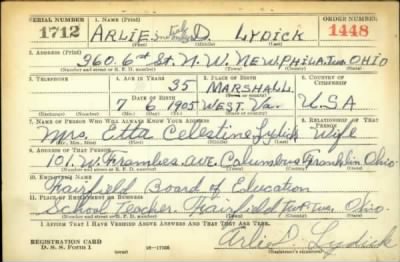 SERIAL NUMBER 1. NAME (Print) ORDER NUMBER
1712 ARLIE D. LYDICK 1448
(First) (Middle) (Last)
2. ADDRESS (Print)
360. 6th St. N.W. NEW PHILA. Tus. OHIO
(Number and street or R. F. D. number) (Town) (County) (State)
3. TELEPHONE 4. AGE IN YEARS 5. PLACE OF BIRTH 6. COUNTRY OF CITIZENSHIP
35 MARSHALL
DATE OF BIRTH
7 6 1905 WEST. Va. U.S.A
(Mo.) (Day) (Yr.)
7. NAME OF PERSON WHO WILL ALWAYS KNOW YOUR ADDRESS 8. RELATIONSHIP OF THAT PERSON
Mrs. Etta Celestine Lydick Wife
(Mr., Mrs., Miss) (First) (Middle) (Last)
9. ADDRESS OF THAT PERSON
101. W. Frambes ave. Columbus Franklin Ohio
(Number and street or R. F. D. number) (Town) (County) (State)
10. EMPLOYER'S NAME
Fairfield Board of Education
11. PLACE OF EMPLOYMENT OR BUSINESS
School teacher. Fairfield Twp. Tus. Ohio.
(Number and street or R. F. D. number) (Town) (County) (State)
I AFFIRM THAT I HAVE VERIFIED ABOVE ANSWERS AND THAT THEY ARE TRUE.
REGISTRATION CARD
D. S. S. Form 1 (over) 16—17105 Arlie D. Lydick